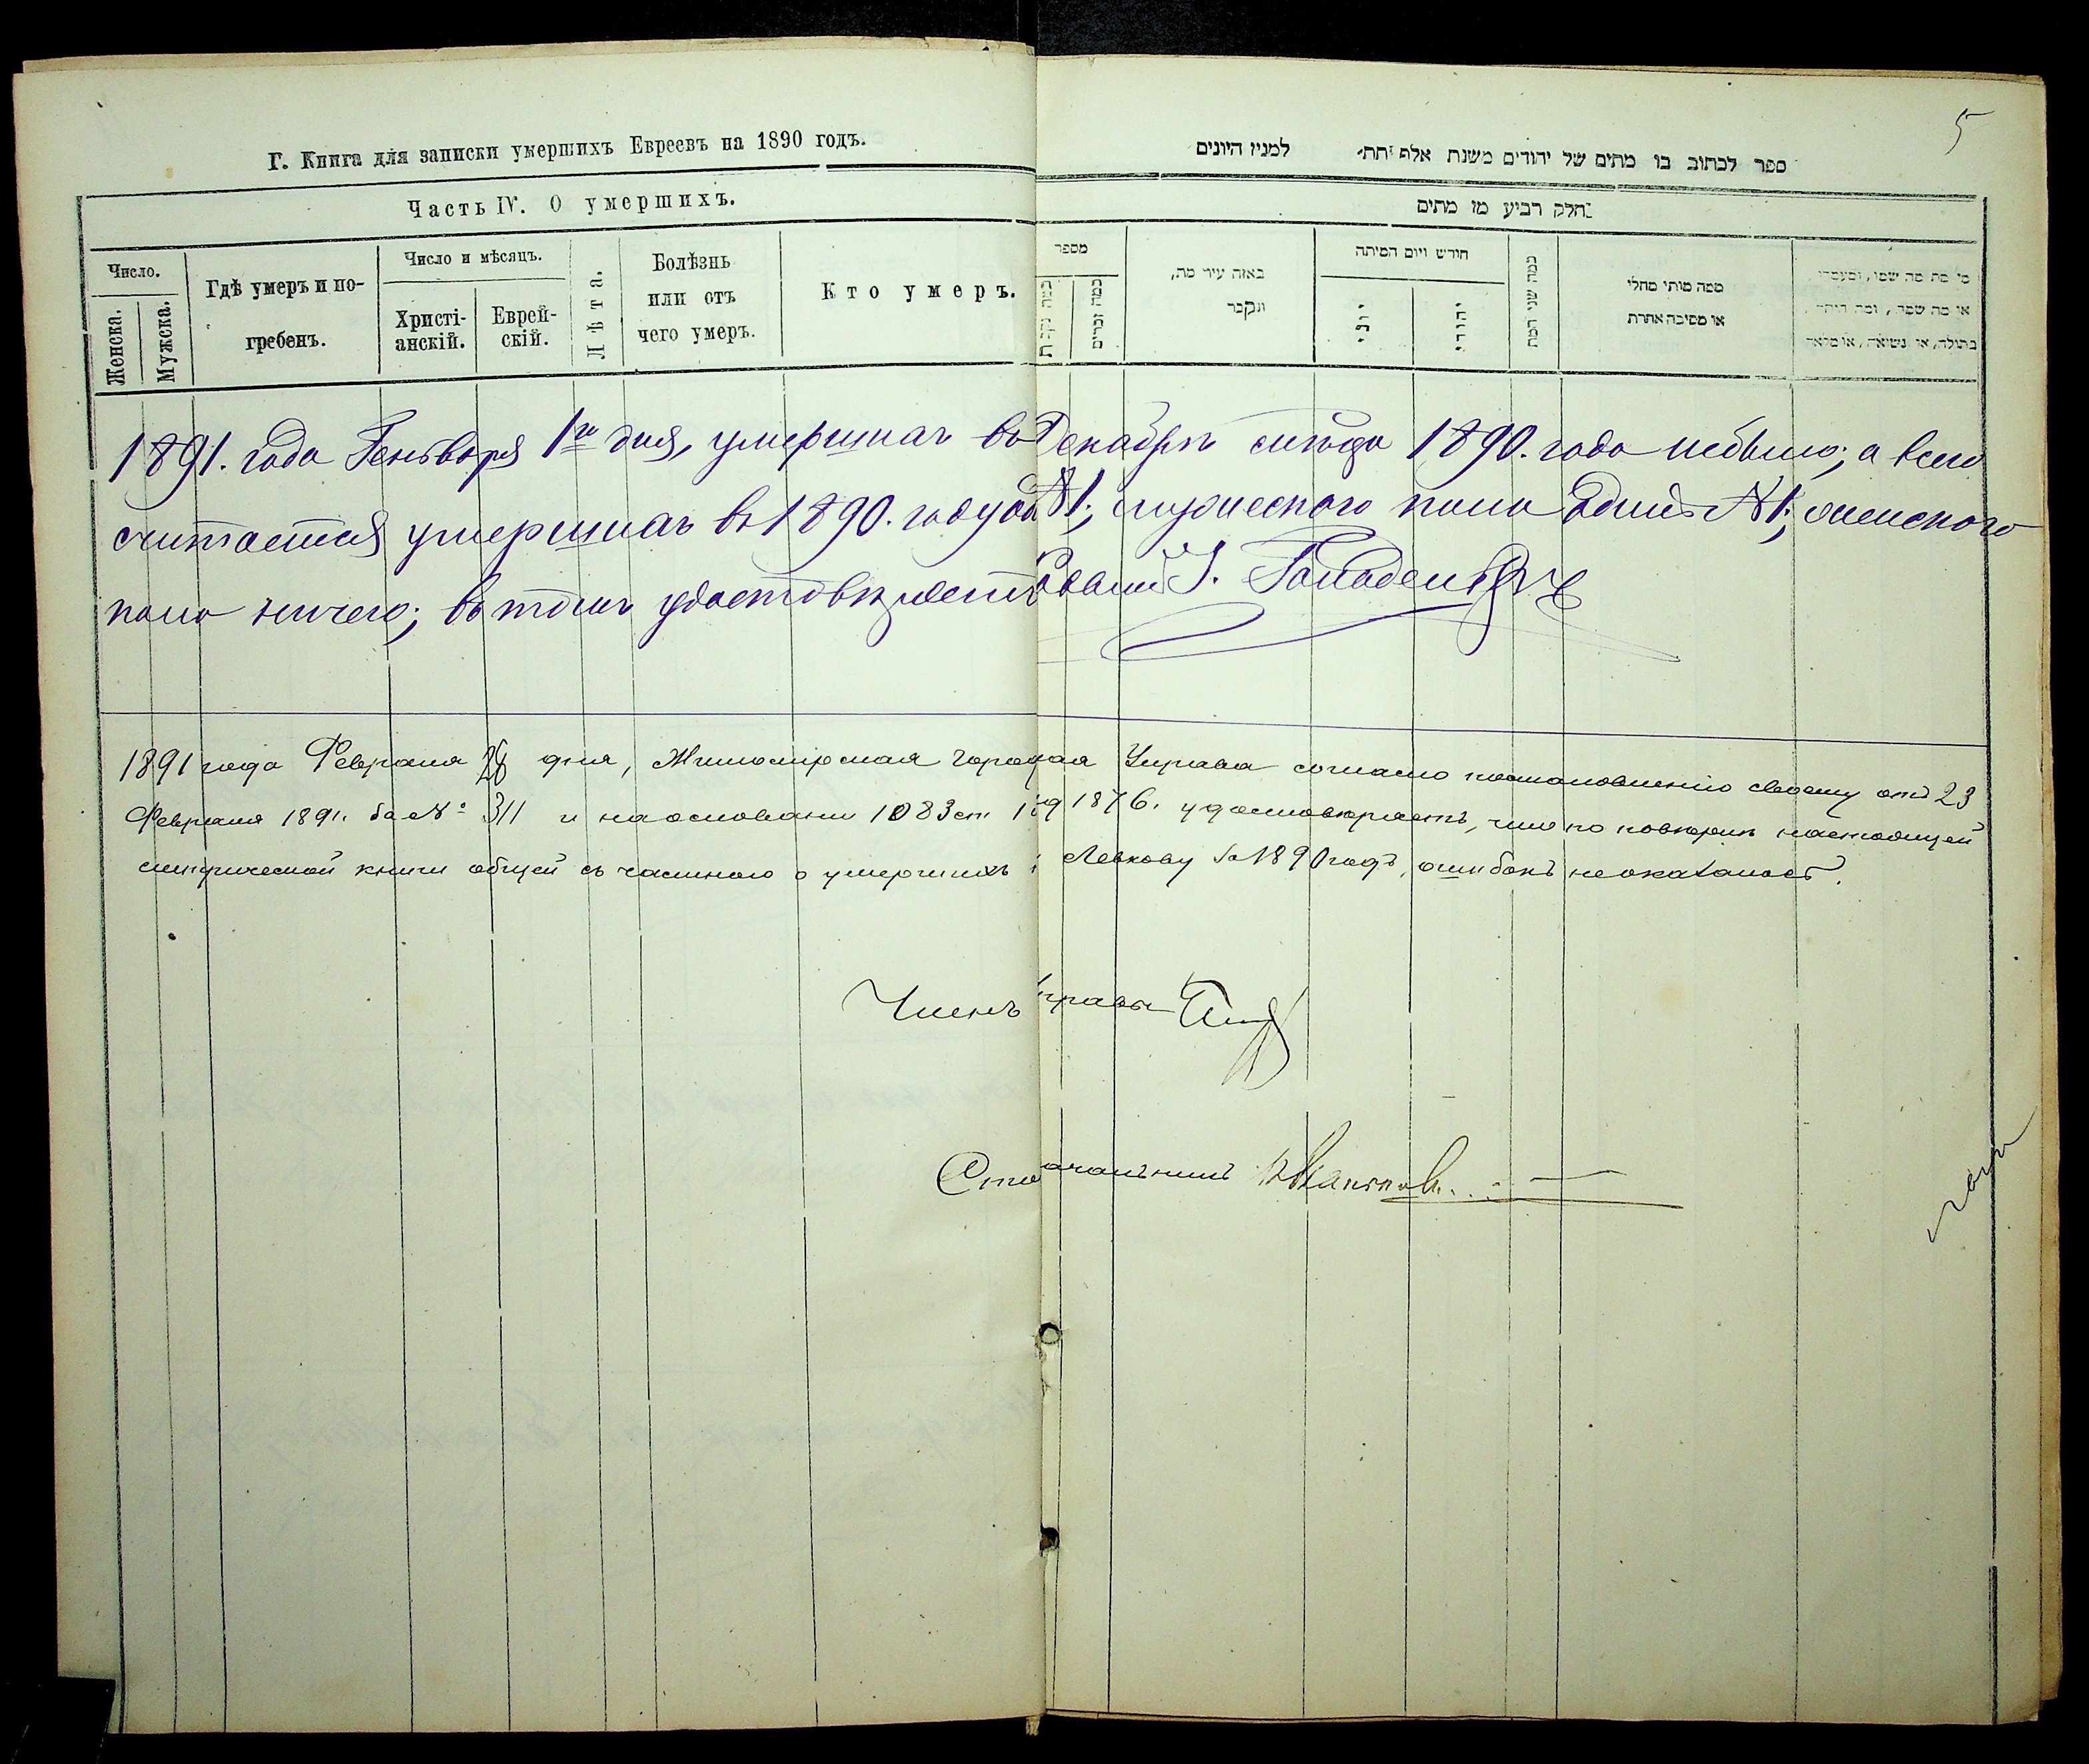 5
Г. Книга для записки умершихъ Евреевъ на 1890 годъ.
ספר לכתוב בו מתים של יהודים משנת אלף תת׳ למנין היונים
Часть IV. О умершихъ.
חלק רביע מן מתים
Число.
Женска.
Мужска.
Гдѣ умеръ и по-
гребенъ.
Число и мѣсяцъ.
Христі-
анскій.
Еврей-
скій.
Лѣта.
Болѣзнь
или отъ
чего умеръ.
Кто умеръ.
מספר
כמה זכרים
באזה עיר מת,
ונקבר
חורש ויום המיתה
יוני
יהודי
כמה שני המת
ממה מותי מחלי
או מסיבה אחרת
מי מת מה שמו,
או מה שמה, ומה היתה,
בתולה, או נשואה, או
1891. года Генваря 1го дня, умершихъ въ Декабрѣ 1890. года небыло; а всего
считается умершихъ въ 1890. году N 1; мужескаго пола одинъ N 1; женскаго
пола ничего; въ томъ удостовѣряетъ Раввинъ
1891 года Февраля 28 дня, Житомірская Городская Управа согласно постановленію своему отъ 23
Февраля 1891. за № 311 и на основаніи 1083 ст. 1876. удостовѣряетъ, что по повѣркѣ настоящей
метрической книги общей съ частною о умершихъ Левкову за 1890 годъ, ошибокъ неоказалось.
Членъ Управы
Столоначальникъ